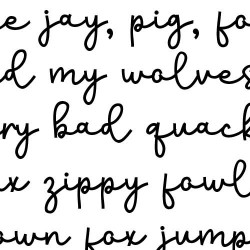 e jay, pig, fo
d my wolves
ry bad quack
x zippy fowl
own fox jump